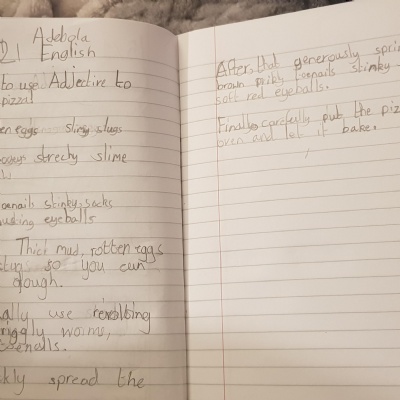 Adebola
21 English
to use Adjective to
pizza!
en eggs slimy slugs
strechy slime
stinky socks
usting eyeballs
Thick mud, rotten eggs
so you can
dough.
ally use revolting
riggly worms,
kly spread the
After that generously spri
brown stinky
soft red eyeballs.
Finally carefully put the piz
oven and let it bake.